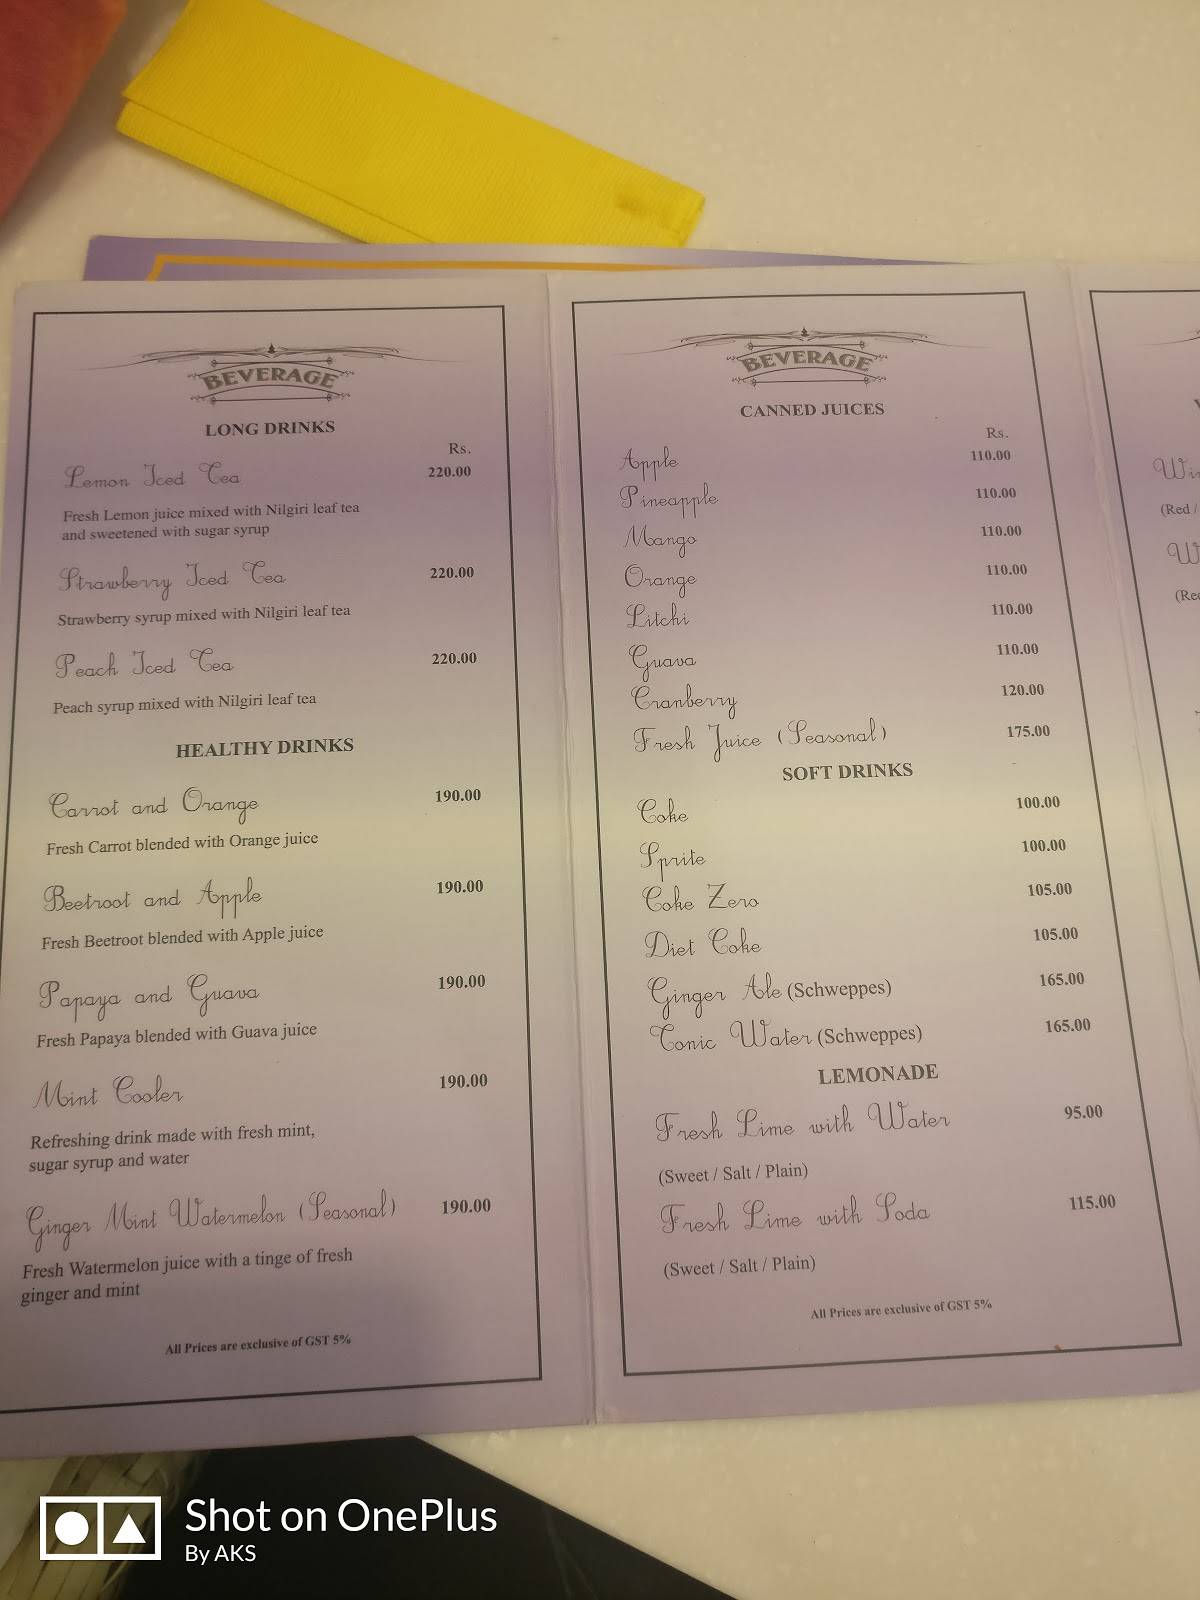 BEVERAGE
LONG DRINKS
Rs.
Lemon Iced Tea 220.00
Fresh Lemon juice mixed with Nilgiri leaf tea
and sweetened with sugar syrup
Strawberry Iced Tea 220.00
Strawberry syrup mixed with Nilgiri leaf tea
Peach Iced Tea 220.00
Peach syrup mixed with Nilgiri leaf tea
HEALTHY DRINKS
Carrot and Orange 190.00
Fresh Carrot blended with Orange juice
Beetroot and Apple 190.00
Fresh Beetroot blended with Apple juice
Papaya and Guava 190.00
Fresh Papaya blended with Guava juice
Mint Cooler 190.00
Refreshing drink made with fresh mint,
sugar syrup and water
Ginger Mint Watermelon (Seasonal) 190.00
Fresh Watermelon juice with a tinge of fresh
ginger and mint
All Prices are exclusive of GST 5%
BEVERAGE
CANNED JUICES
Rs.
Apple 110.00
Pineapple 110.00
Mango 110.00
Orange 110.00
Litchi 110.00
Guava 110.00
Cranberry 120.00
Fresh Juice (Seasonal) 175.00
SOFT DRINKS
Coke 100.00
Sprite 100.00
Coke Zero 105.00
Diet Coke 105.00
Ginger Ale (Schweppes) 165.00
Tonic Water (Schweppes) 165.00
LEMONADE
Fresh Lime with Water 95.00
(Sweet / Salt / Plain)
Fresh Lime with Soda 115.00
(Sweet / Salt / Plain)
All Prices are exclusive of GST 5%
(Red /
Shot on OnePlus
By AKS